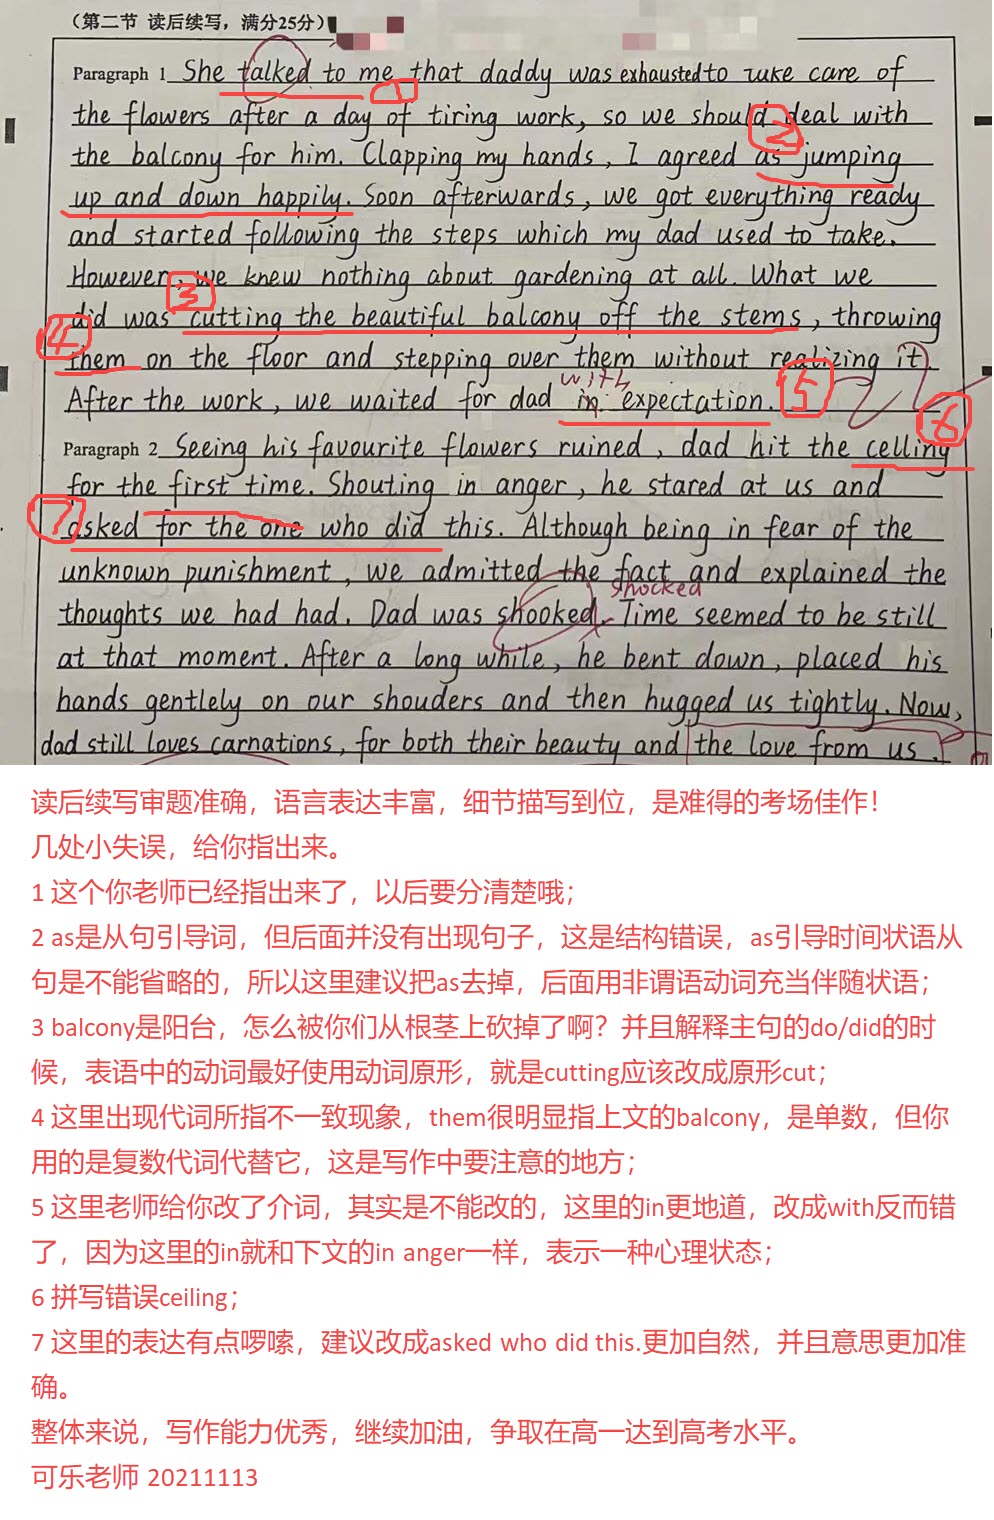 (第二节 读后续写，满分25分)
Paragraph 1 She talked to me that daddy was exhausted to take care of
1
the flowers after a day of tiring work, so we should deal with
2
the balcony for him. Clapping my hands, I agreed as jumping
up and down happily. Soon afterwards, we got everything ready
and started following the steps which my dad used to take.
However, we knew nothing about gardening at all. What we
3
did was cutting the beautiful balcony off the stems, throwing
4
them on the floor and stepping over them without realizing it.
with
5
After the work, we waited for dad in expectation.
6
Paragraph 2 Seeing his favourite flowers ruined, dad hit the celling
for the first time. Shouting in anger, he stared at us and
7
asked for the one who did this. Although being in fear of the
unknown punishment, we admitted the fact and explained the
shocked
thoughts we had had. Dad was shooked. Time seemed to be still
at that moment. After a long while, he bent down, placed his
hands gentlely on our shouders and then hugged us tightly. Now,
dad still loves carnations, for both their beauty and the love from us.
读后续写审题准确，语言表达丰富，细节描写到位，是难得的考场佳作！
几处小失误，给你指出来。
1 这个你老师已经指出来了，以后要分清楚哦；
2 as是从句引导词，但后面并没有出现句子，这是结构错误，as引导时间状语从
句是不能省略的，所以这里建议把as去掉，后面用非谓语动词充当伴随状语；
3 balcony是阳台，怎么被你们从根茎上砍掉了啊？并且解释主句的do/did的时
候，表语中的动词最好使用动词原形，就是cutting应该改成原形cut；
4 这里出现代词所指不一致现象，them很明显指上文的balcony，是单数，但你
用的是复数代词代替它，这是写作中要注意的地方；
5 这里老师给你改了介词，其实是不能改的，这里的in更地道，改成with反而错
了，因为这里的in就和下文的in anger一样，表示一种心理状态；
6 拼写错误ceiling；
7 这里的表达有点啰嗦，建议改成asked who did this.更加自然，并且意思更加准
确。
整体来说，写作能力优秀，继续加油，争取在高一达到高考水平。
可乐老师 20211113